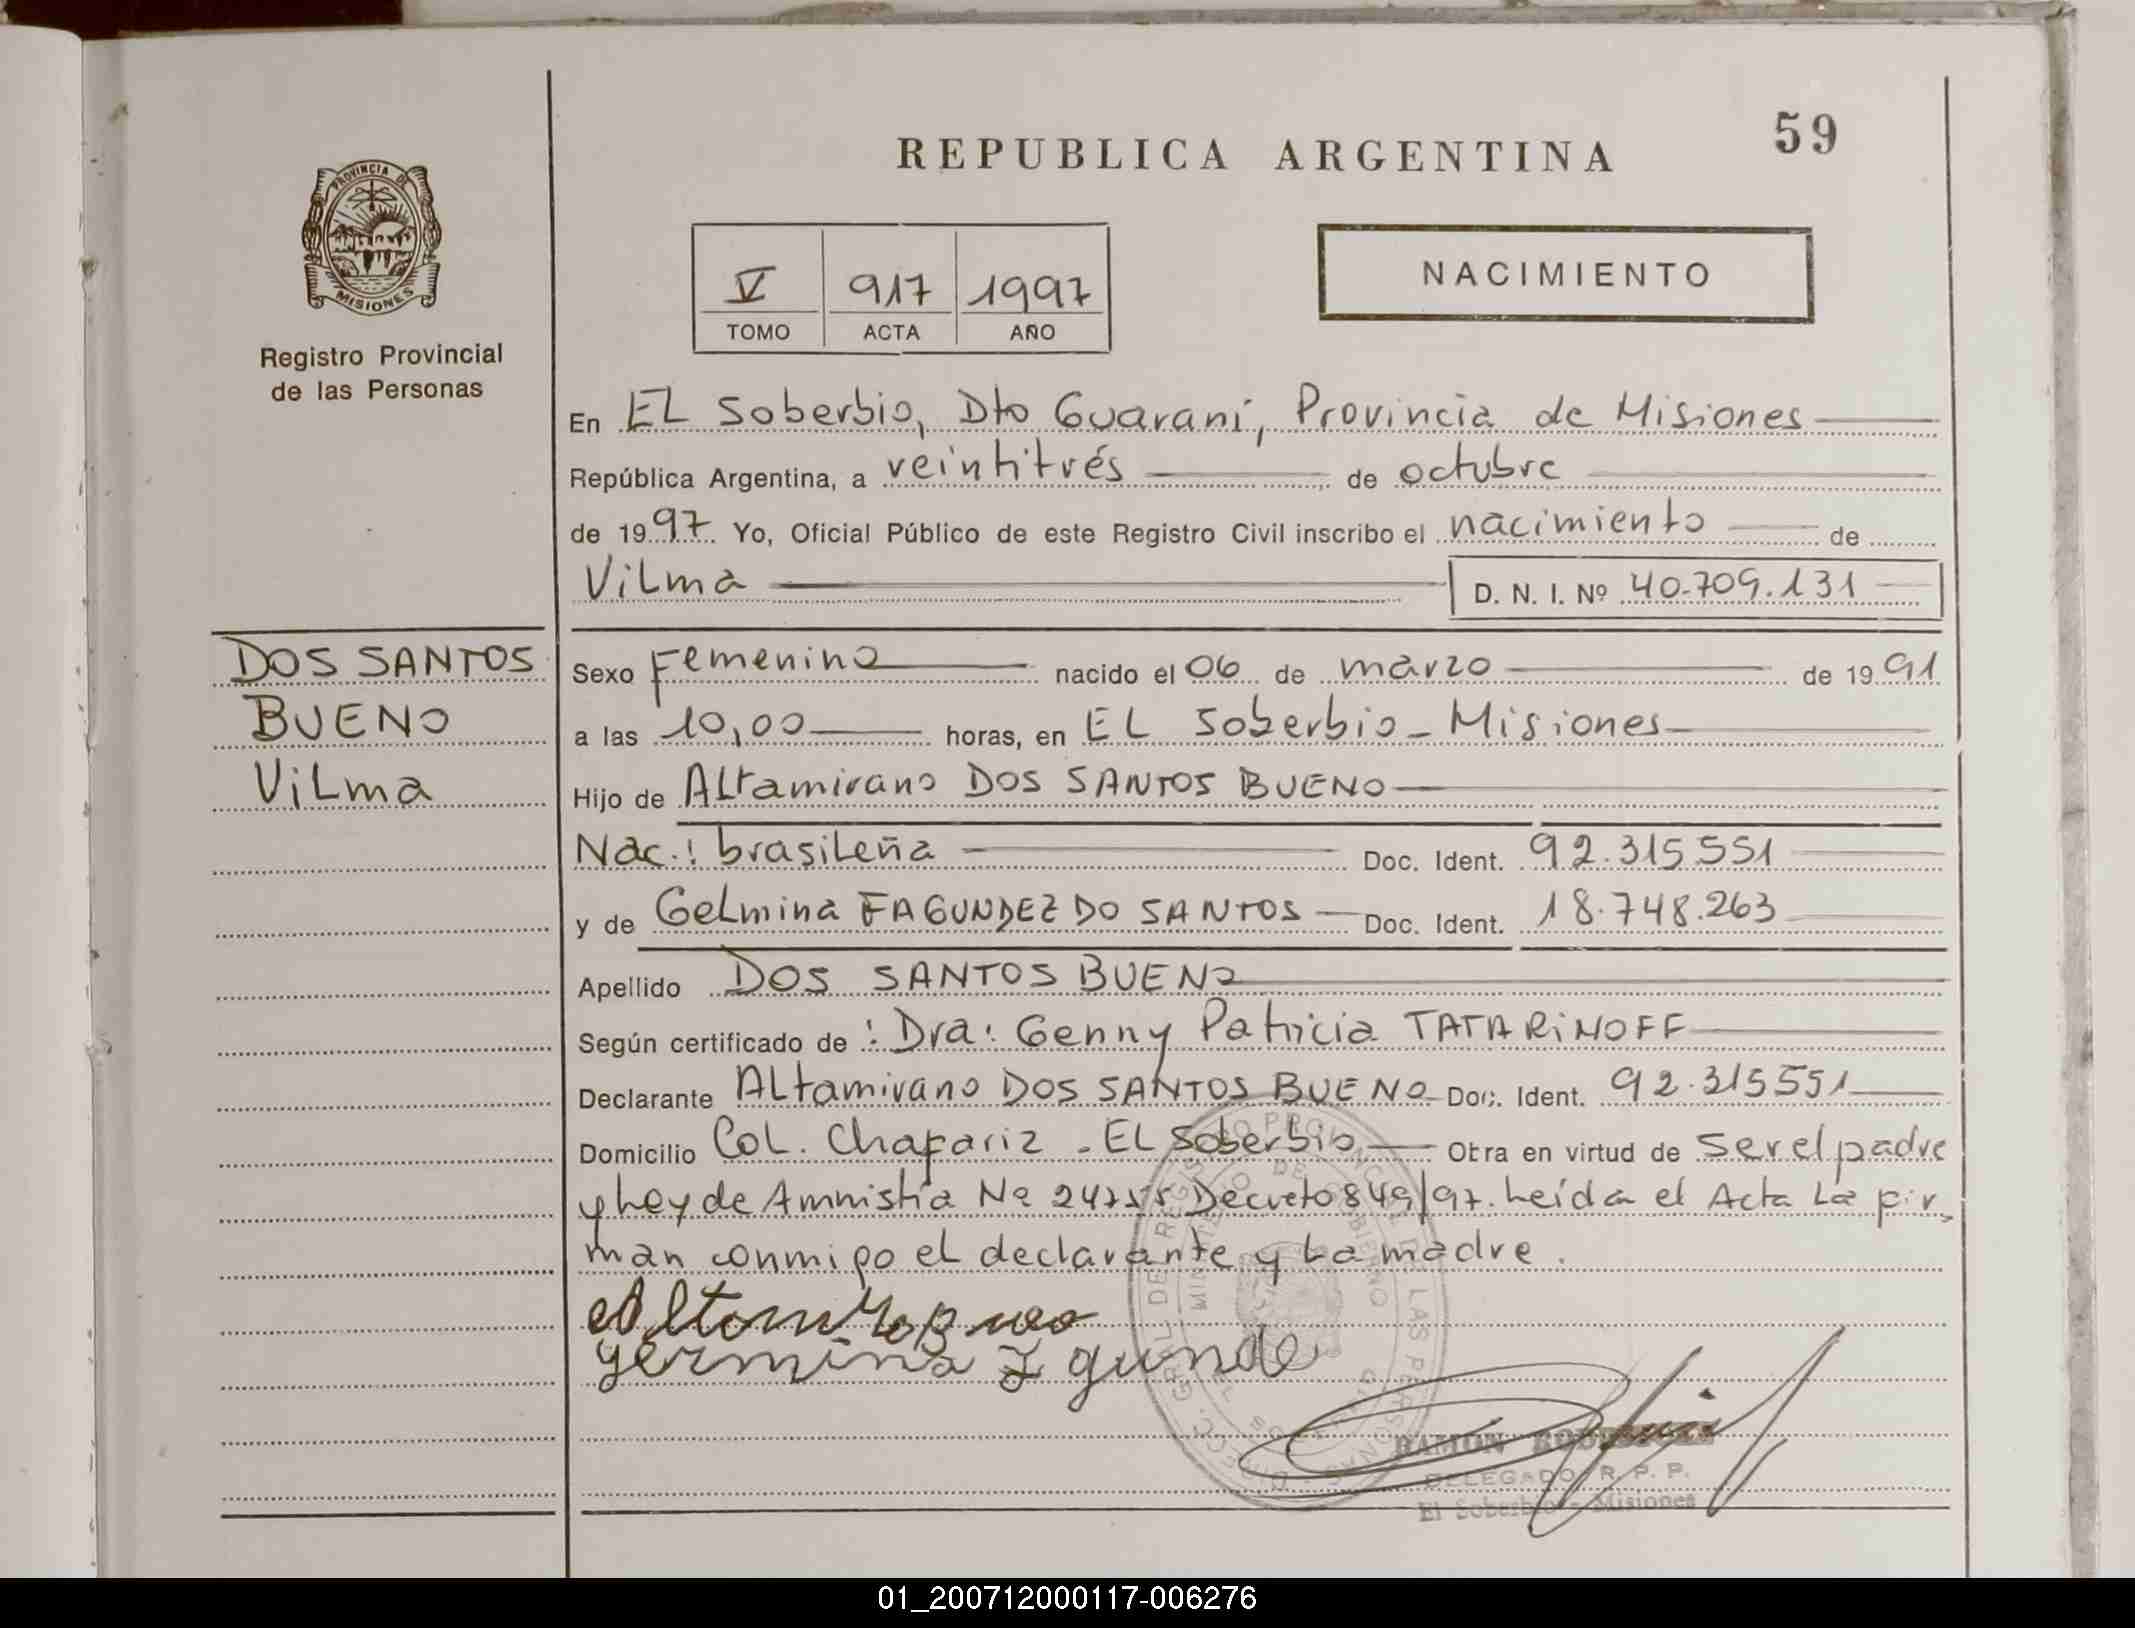 59
REPUBLICA ARGENTINA
PROVINCIA DE
MISIONES
Registro Provincial
de las Personas
V 917 1997
TOMO ACTA AÑO
NACIMIENTO
En EL Soberbio, Dto Guaraní, Provincia de Misiones
República Argentina, a veintitrés de octubre
de 1997 Yo, Oficial Público de este Registro Civil inscribo el nacimiento de
Vilma D. N. I. Nº 40.709.131
DOS SANTOS
BUENO
Vilma
Sexo Femenino nacido el 06 de marzo de 1991
a las 10,00 horas, en EL Soberbio - Misiones
Hijo de Altamirano DOS SANTOS BUENO
Nac.: brasileña Doc. Ident. 92.315.551
y de Gelmina FAGUNDEZ DO SANTOS Doc. Ident. 18.748.263
Apellido DOS SANTOS BUENO
Según certificado de : Dra: Genny Patricia TATARINOFF
Declarante Altamirano DOS SANTOS BUENO Doc. Ident. 92.315551
Domicilio Col. Chafariz - EL Soberbio Otra en virtud de ser el padre
y Ley de Amnistía Nº 24755 Decreto 849/97. Leída el Acta La fir-
man conmigo el declarante y La madre.
RAMON
DELEGADO R. P. P.
El Soberbio - Misiones
01_200712000117-006276